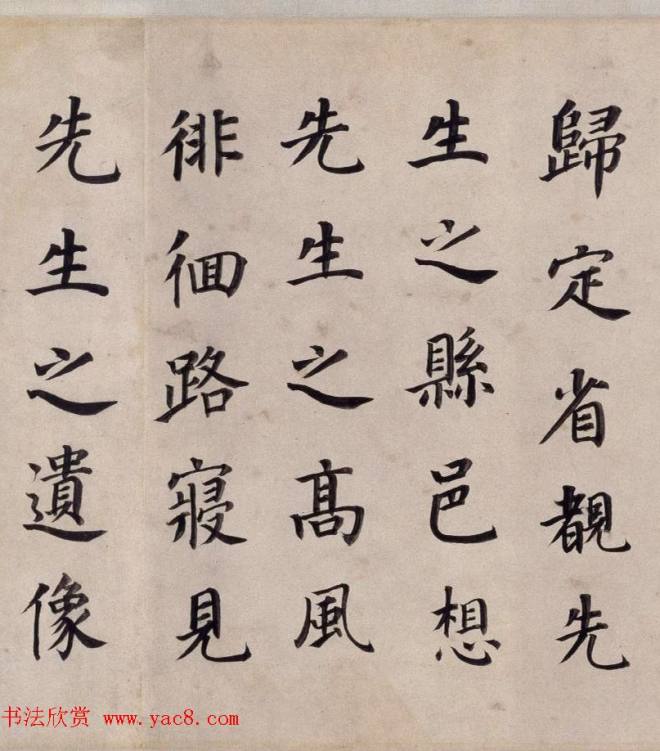 歸定省覩先
生之縣邑想
先生之髙風
徘徊路寢見
先生之遺像
书法欣赏 www.yac8.com